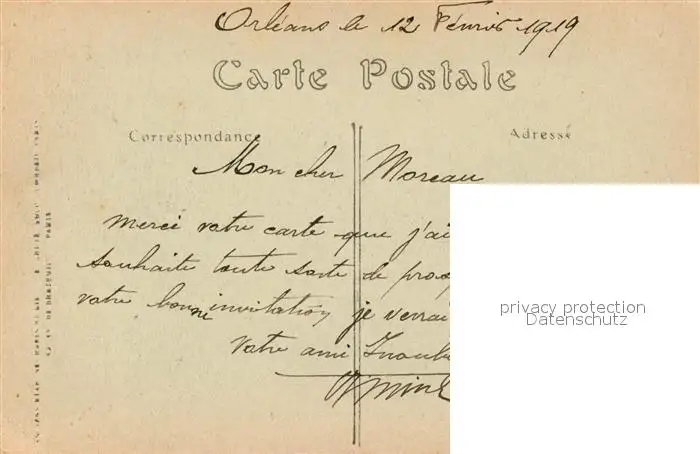 Orléans le 12 Février 1919
Carte Postale
Correspondance
Adresse
Mon cher Moreau
Merci votre carte que j'ai
souhaite toute sorte de pros
votre bonne invitation je verrai
Votre ami
privacy protection
Datenschutz